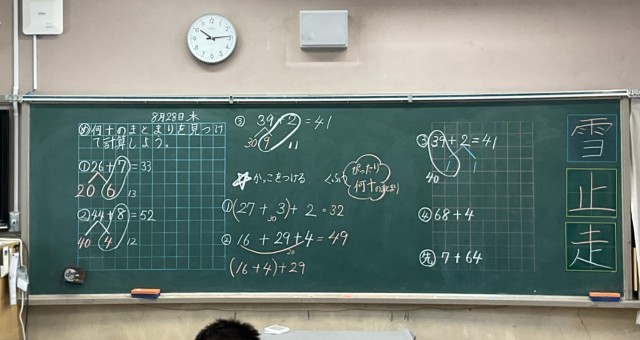 8月28日木
め 何十のまとまりを見つけ
て計算しよう。
① 26+7=33
20 6 13
② 44+8=52
40 4 12
③ 39+2=41
30 9 11
☆かっこをつける。
ぴったり
何十のまとまり
① (27+3)+2=32
30
② 16+29+4=49
20
(16+4)+29
③ 39+2=41
1 1
40
④ 68+4
先 7+64
雪
止
走